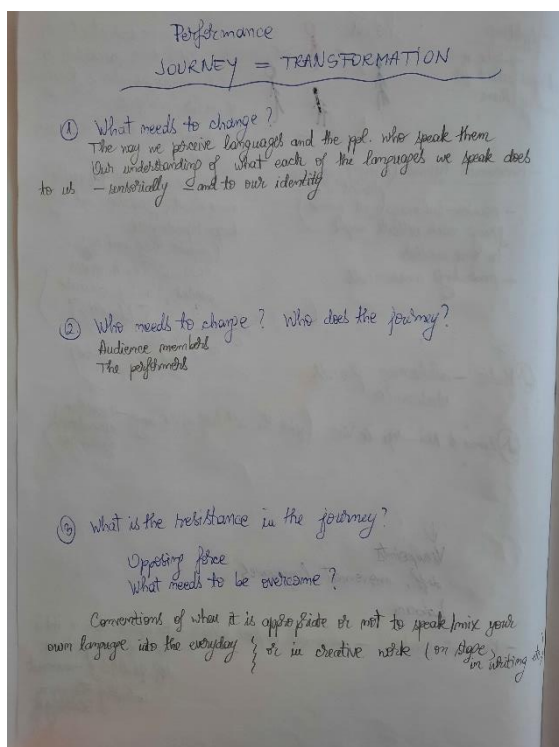 Performance
JOURNEY = TRANSFORMATION
① What needs to change?
The way we perceive languages and the ppl. who speak them
Our understanding of what each of the languages we speak does
to us – sensorially – and to our identity
② Who needs to change? Who does the journey?
Audience members
The performers
③ What is the resistance in the journey?
Opposing force
What needs to be overcome?
Conventions of when it is appropriate or not to speak/mix your
own language into the everyday or in creative work (on stage,
in writing